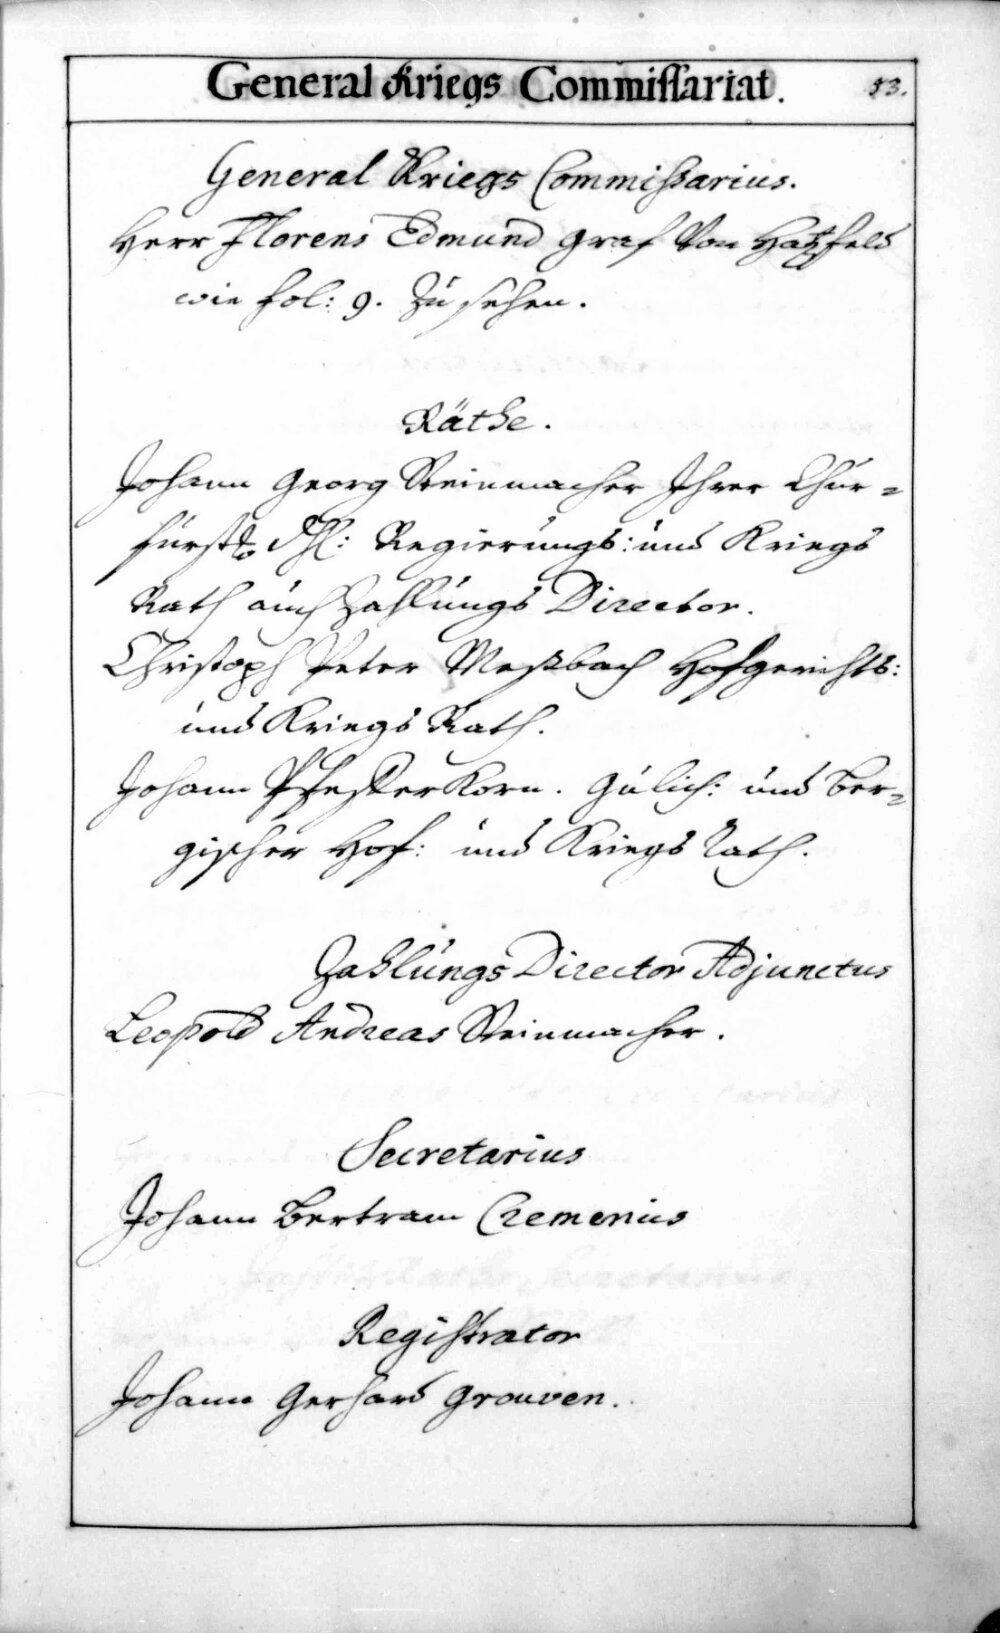 General Kriegs Commissariat. 53.
General Kriegs Commissarius.
Herr Florens Edmund Graf Von Hatzfeld
wie fol: 9. zu sehen.
Räthe.
Johann Georg Steinmacher Ihrer Chur=
fürstl. Dhl: Regierungs: und Kriegs
Rath auch Zahlungs Director.
Christoph Peter Meßbach Hofgerichts:
und Kriegs Rath.
Johann Pfefferkorn. Gülich: und Ber=
gischer Hof: und Kriegs Rath.
Zahlungs Director Adjunctus
Leopold Andreas Steinmacher.
Secretarius
Johann Bertram Cremerius
Registrator
Johann Gerhard Grouven.